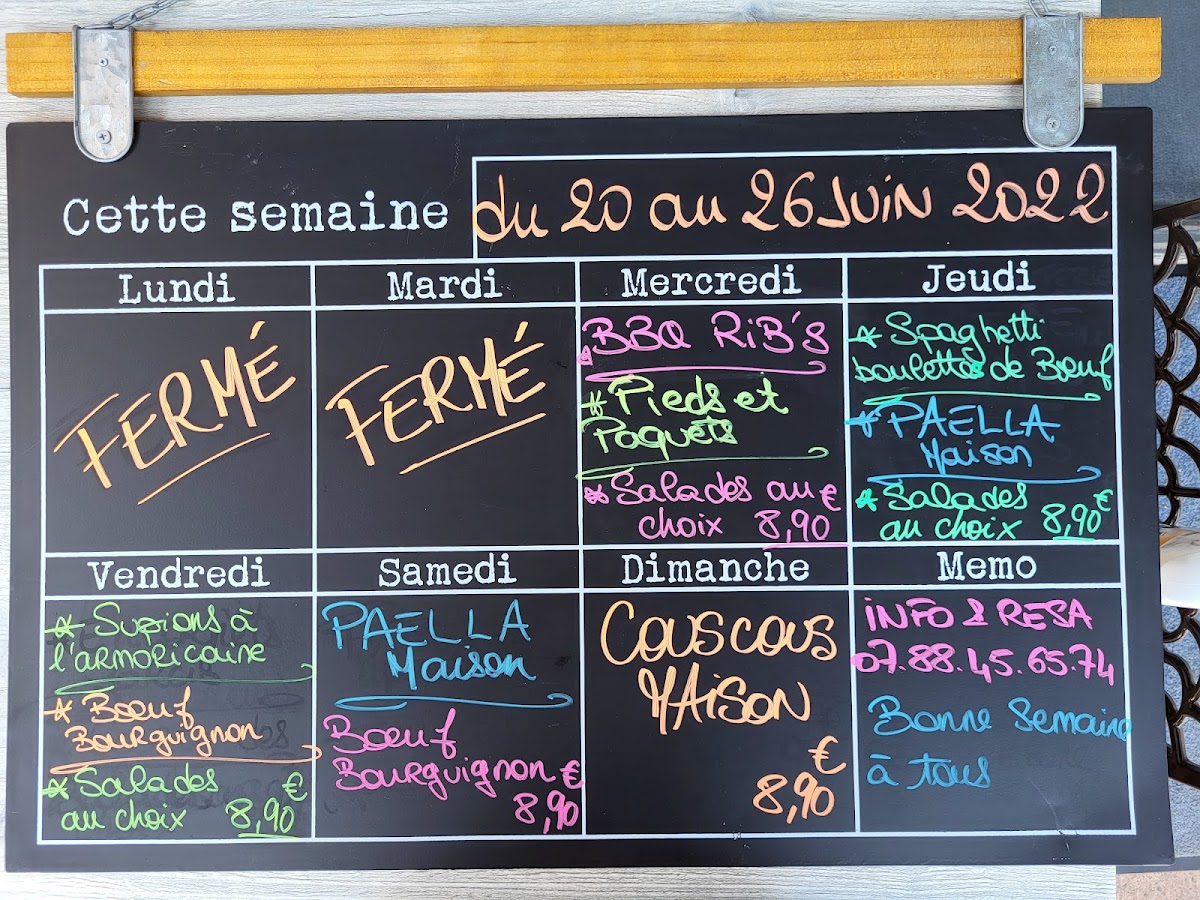 Cette semaine
du 20 au 26 JUiN 2022
Lundi
FERMÉ
Mardi
FERMÉ
Mercredi
BBQ RiB's
* Pieds et
Paquets
* Salades au €
choix 8,90
Jeudi
* Spaghetti
boulettes de Bœuf
* PAELLA
Maison
* Salades €
au choix 8,90
Vendredi
* Supions à
l'armoricaine
* Bœuf
Bourguignon
* Salades €
au choix 8,90
Samedi
PAELLA
Maison
Bœuf
Bourguignon €
8,90
Dimanche
Couscous
MAiSON
€
8,90
Memo
iNFO & RESA
07.88.45.65.74
Bonne Semaine
à tous